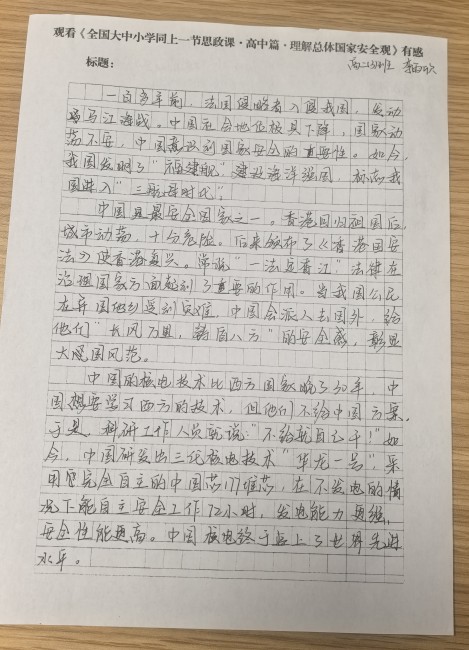 观看《全国大中小学同上一节思政课·高中篇·理解总体国家安全观》有感
标题：
一百多年前，法国侵略者入侵我国，发动
马江海战。中国社会地位极具下降，国家动
荡不安，中国意识到国家安全的重要性。如今，
我国发明了“福建舰”建设海洋强国，标志我
国进入“三航母时代”。
中国是最安全国家之一。香港回归祖国后，
城市动荡，十分危险。后来颁布了《香港国安
法》使香港复兴。常说“一法定香江”法律在
治理国家方面起到了重要的作用。当我国公民
在异国他乡受到灾难，中国会派人去国外，给
他们“长风万里，鹏八方”的安全感，彰显
大展国风范。
中国的核电技术比西方国家晚了30年，中
国想要学习西方的技术，但他们不给中国方案，
于是，科研工作人员就说：“不给就自己干！”如
今，中国研发出三代核电技术“华龙一号”，采
用完全自主的中国芯177堆芯，在不发电的情
况下能自主安全工作72小时，发电能力更强，
安全性能更高。中国核电终于追上了世界先进
水平。